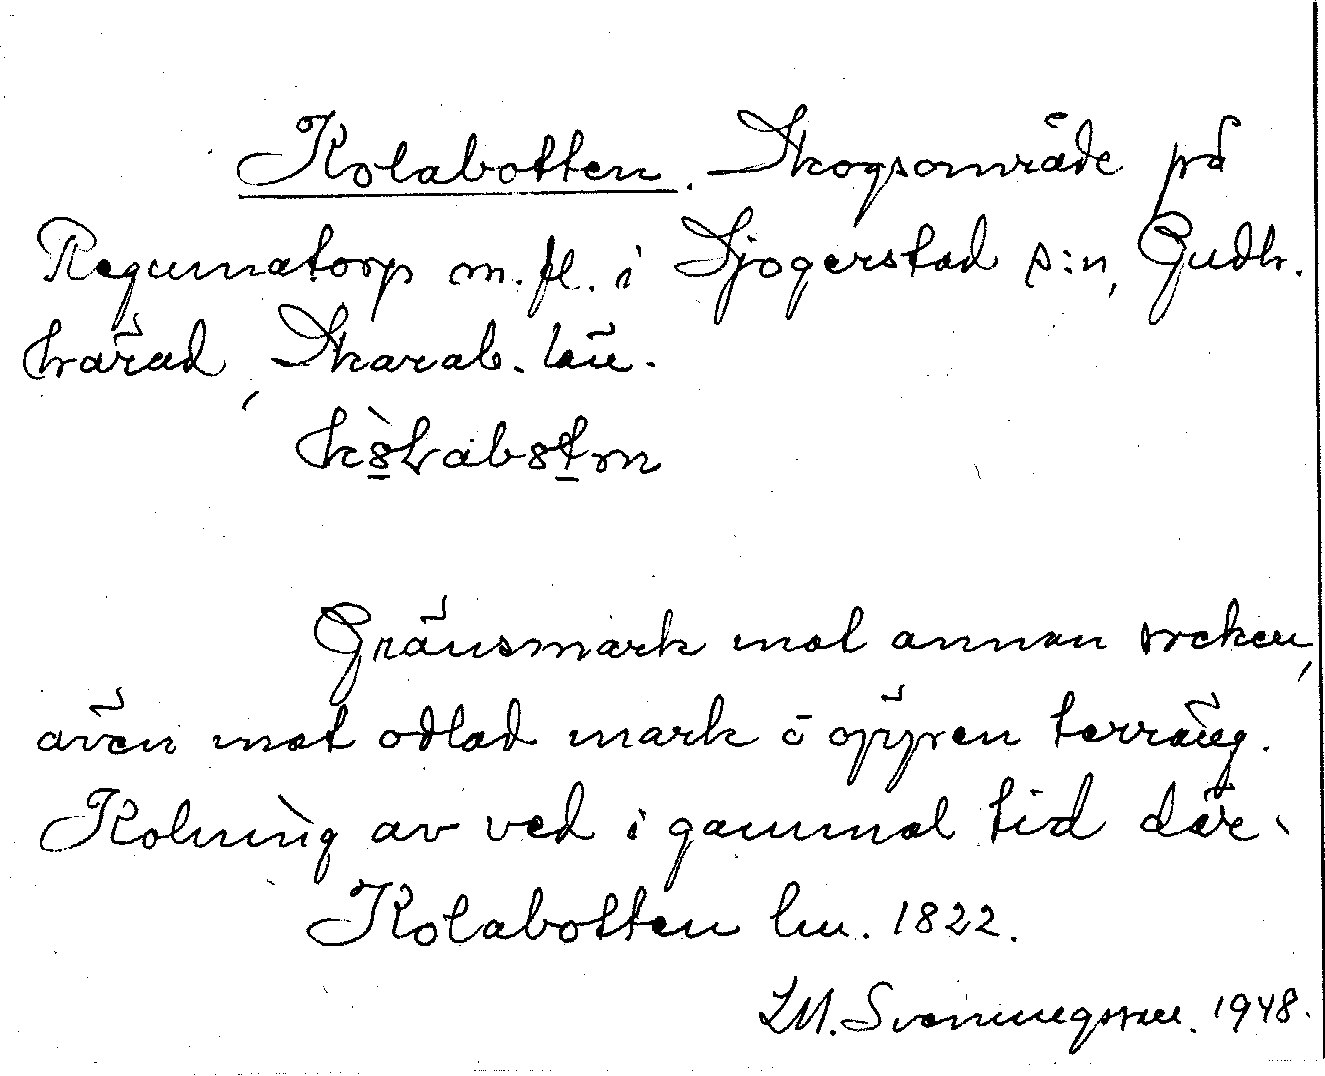 Kolabotten. Skogsområde på
Regumatorp m. fl. i Sjogerstad s:n, Gudh.
härad, Skarab. län.
Gränsmark mot annan socken,
även mot odlad mark o öppen terräng.
Kolning av ved i gammal tid där.
Kolabotten lm. 1822.
Svenungsson. 1948.